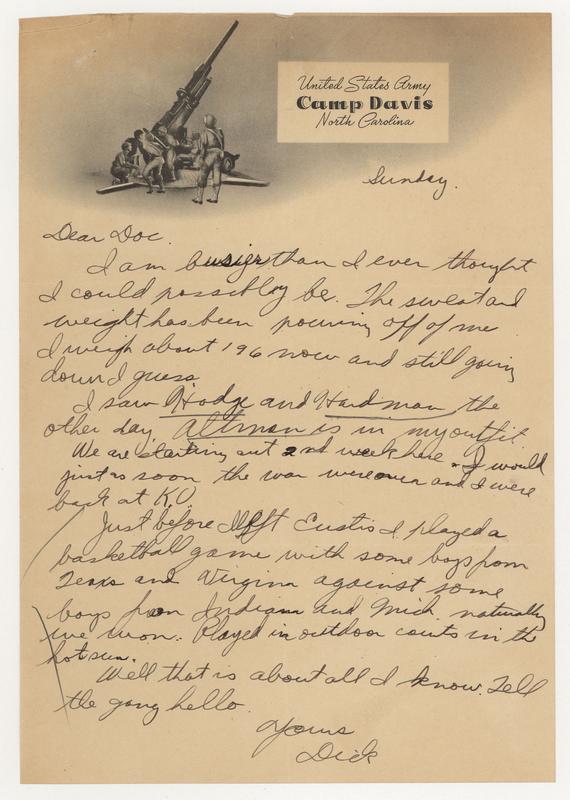 United States Army
Camp Davis
North Carolina
Sunday.
Dear Doc.
I am busier than I ever thought
I could possiblay be. The sweat and
weight has been pouring off of me
I weigh about 196 now and still going
down I guess
I saw Hodge and Hardman the
other day. Altman is in my outfit
We are starting out 2nd week here. I would
just as soon the war were over and I were
back at K.U.
Just before I left Eustis I played a
basketball game with some boys from
Texas and Virgina against some
boys from Indiana and Mich. naturally
we won. Played in outdoor courts in the
hot sun.
Well that is about all I know. Tell
the gang hello.
Yours
Dick